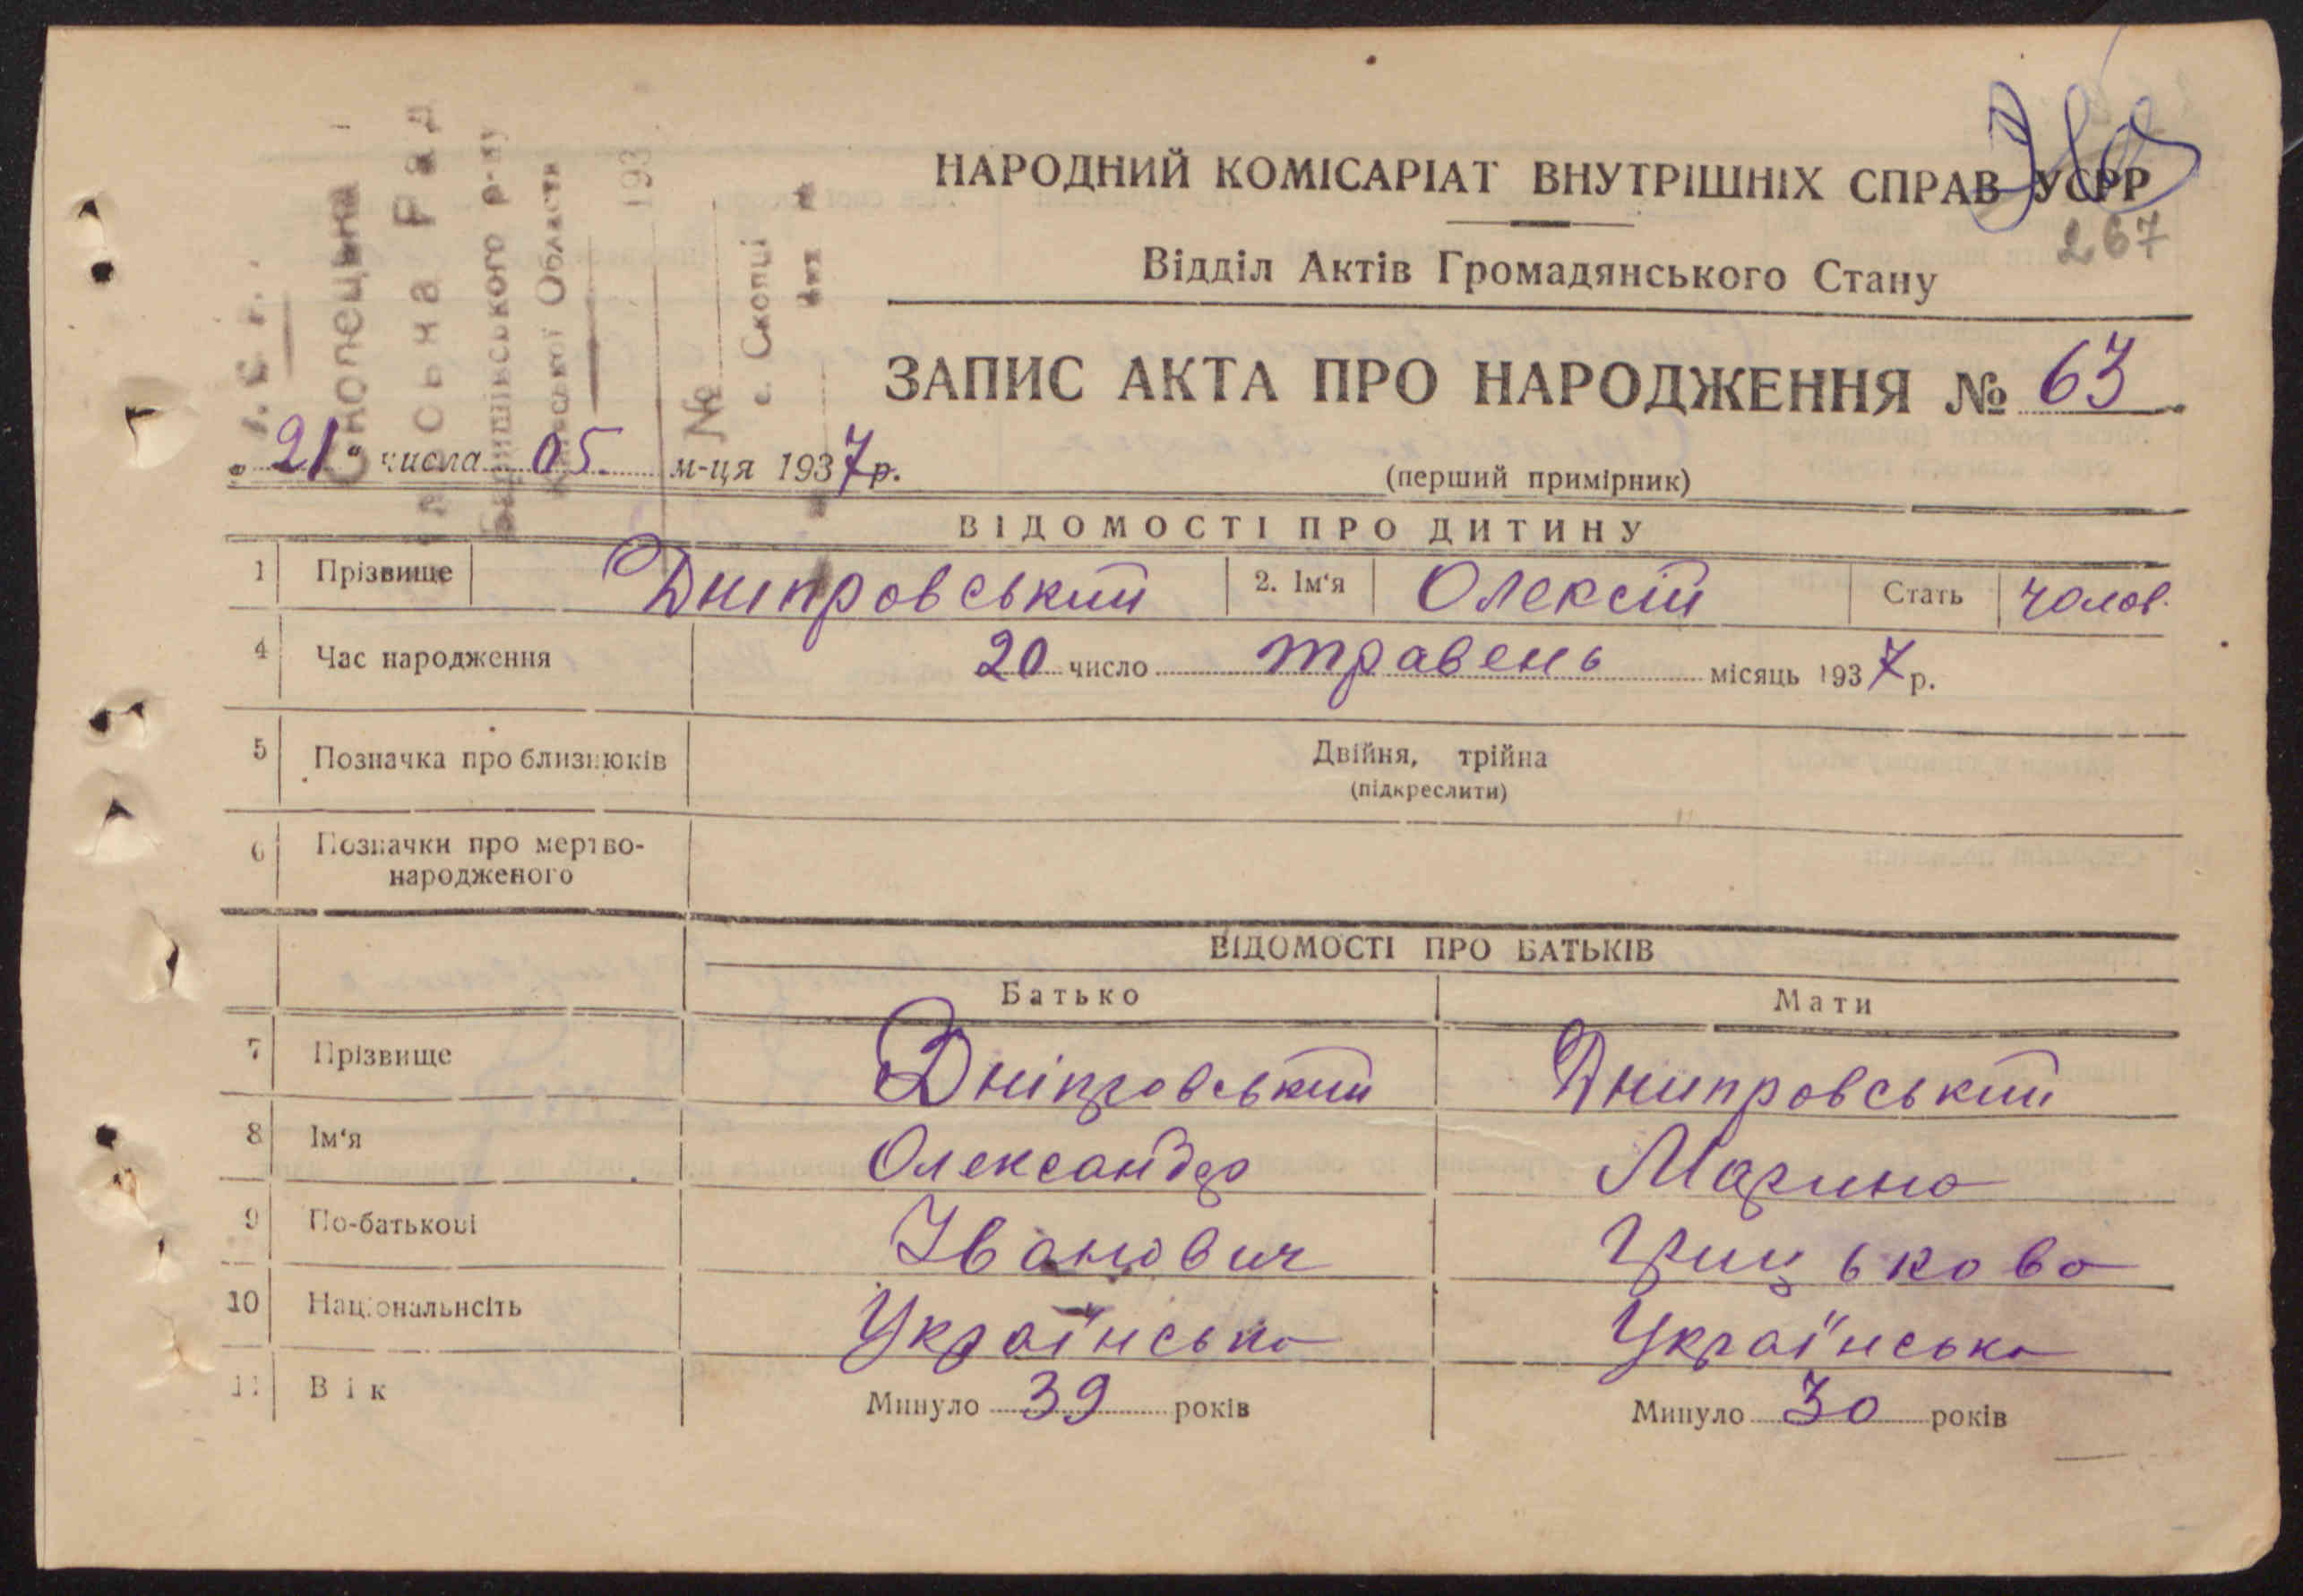 НАРОДНИЙ КОМІСАРІАТ ВНУТРІШНІХ СПРАВ УСРР
267
Відділ Актів Громадянського Стану
ЗАПИС АКТА ПРО НАРОДЖЕННЯ № 63
„21“ числа 05. м-ця 1937р.
(перший примірник)
Сільська Рад
Баришівського р-ну
Київської Области
193
№
с. Скопці
ВІДОМОСТІ ПРО ДИТИНУ
1 Прізвище Дніпровський 2. Ім‘я Олексій Стать чолов.
4 Час народження 20 число травень місяць 1937р.
5 Позначка про близнюків Двійня, трійна
(підкреслити)
6 Позначки про мертво-
народженого
ВІДОМОСТІ ПРО БАТЬКІВ
Батько Мати
7 Прізвище Дніпровський Днипровський
8 Ім‘я Олександр Марина
9 По-батькові Іванович Грицькова
10 Національнсіть Українська Українська
11 Вік Минуло 39 років Минуло 30 років